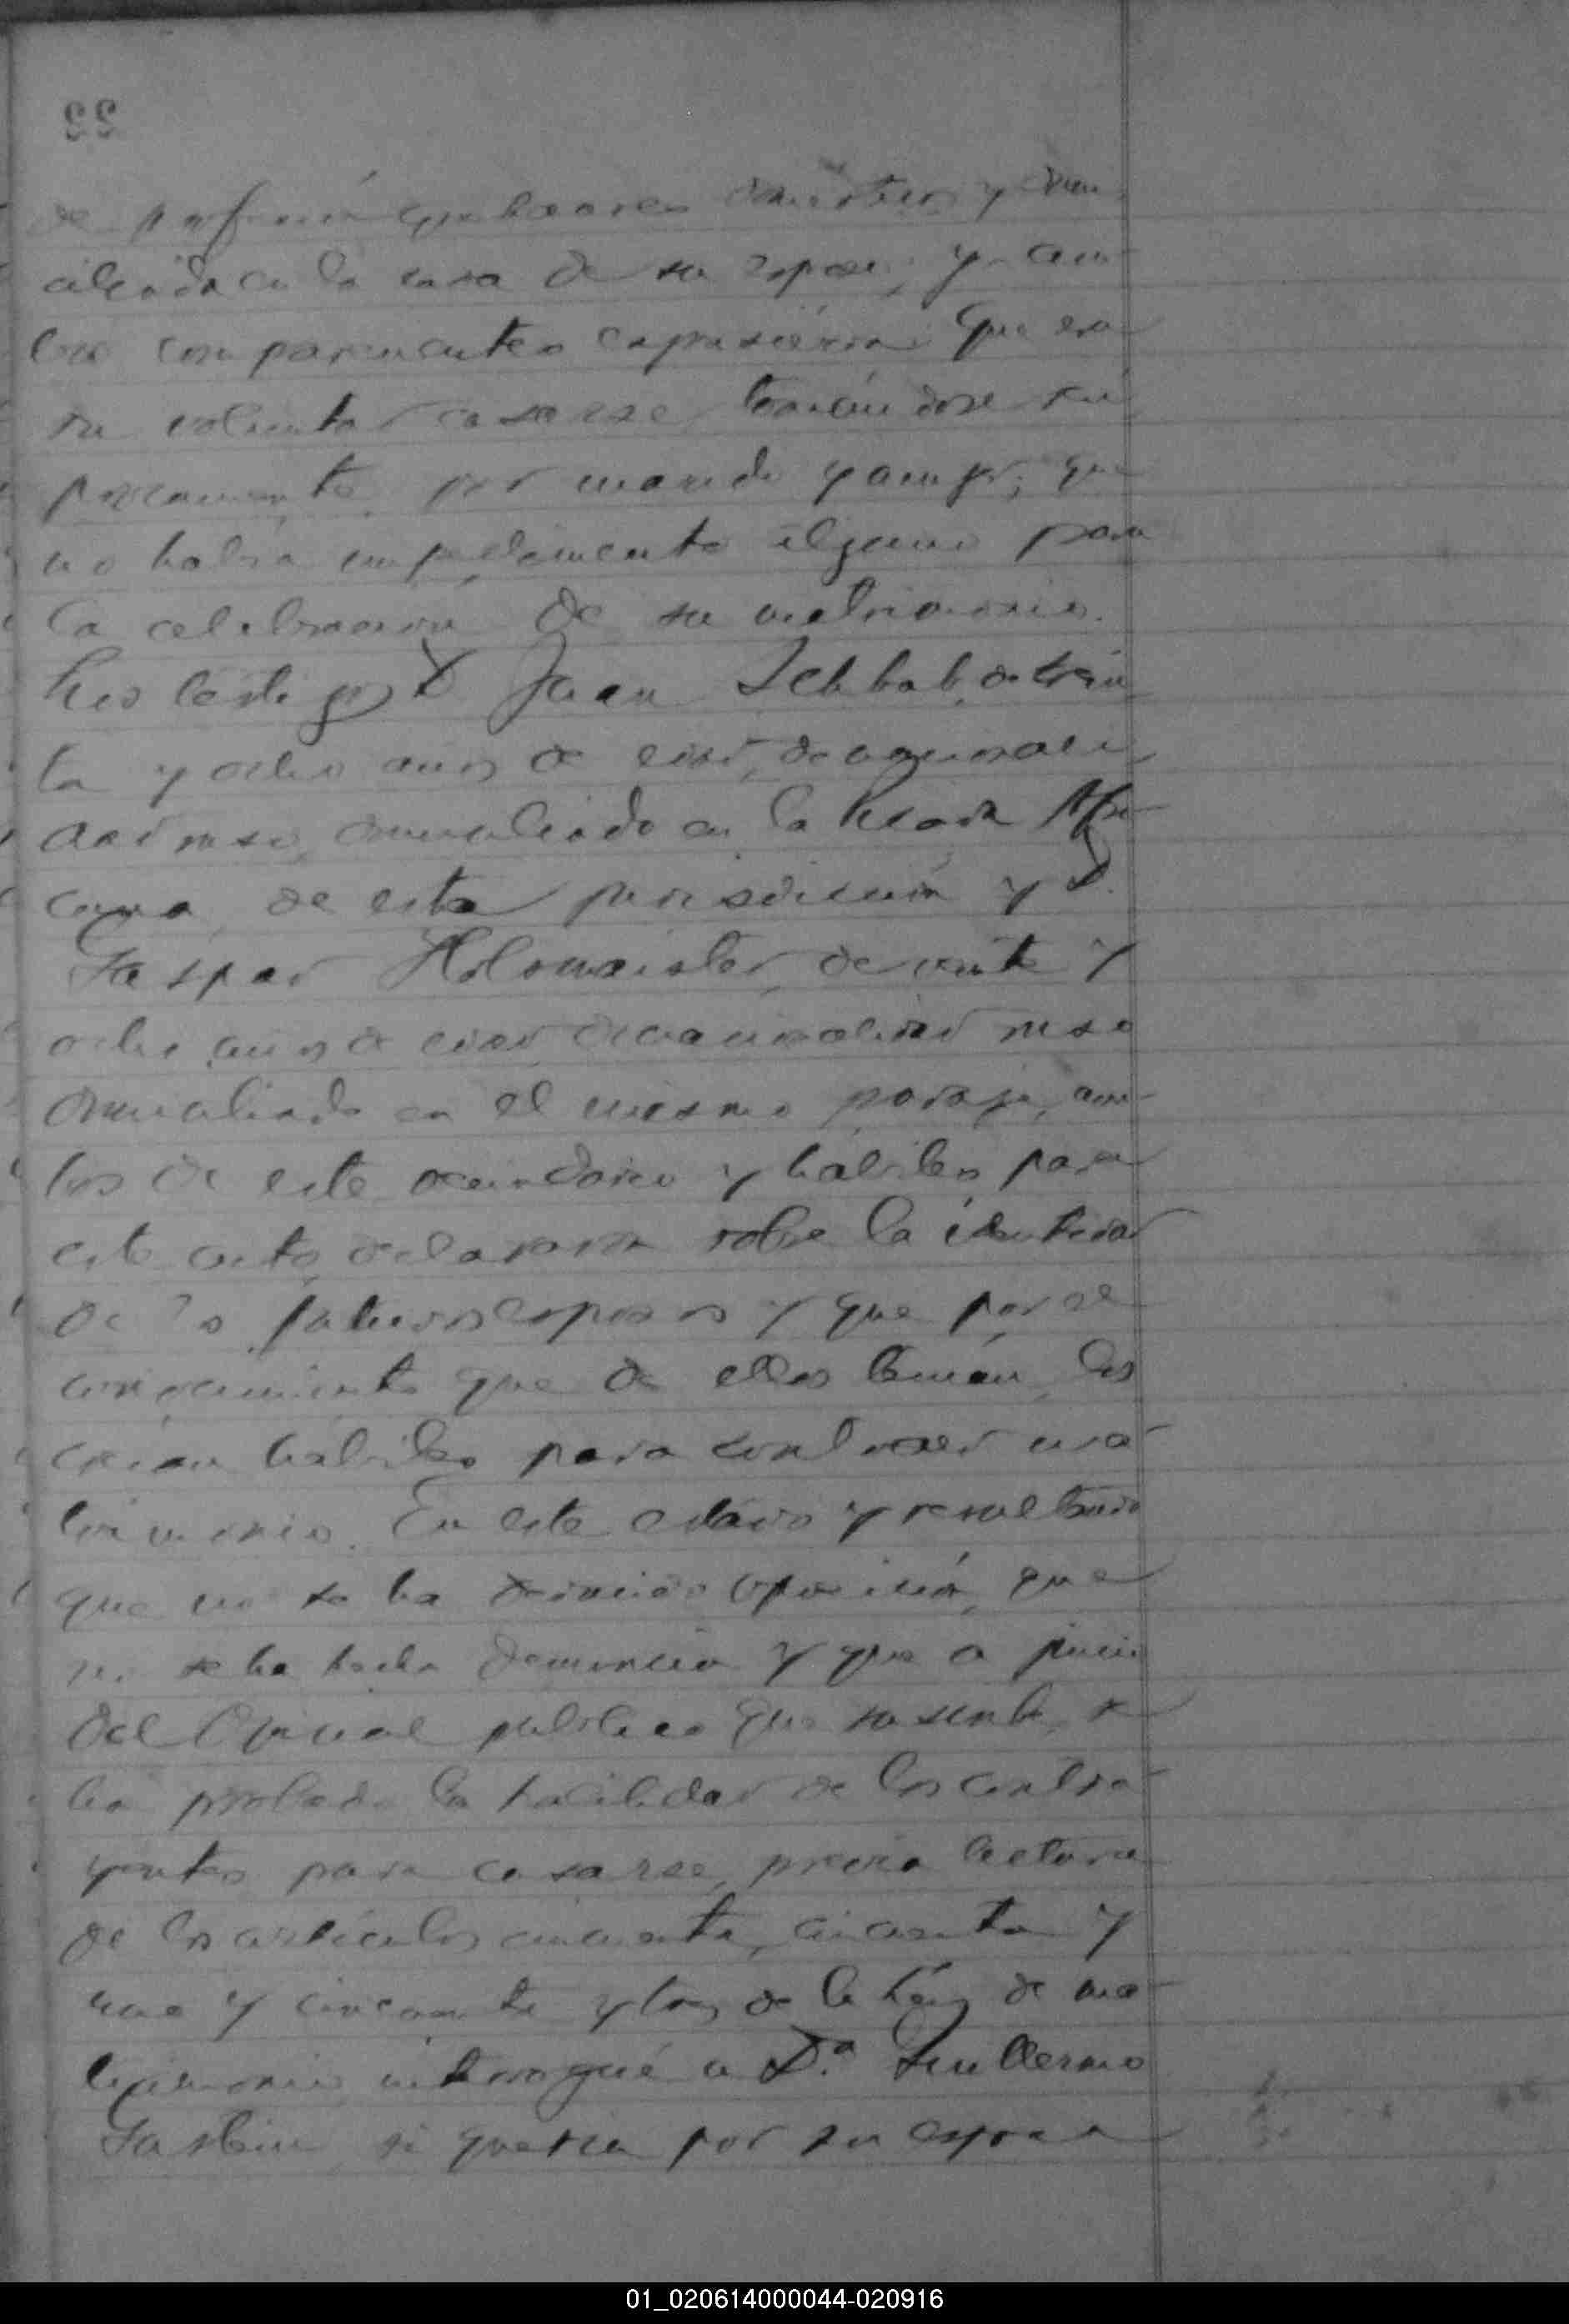 de profesión quehaceres domésticos y domi
ciliada en la casa de su esposo; y am-
bos comparecientes expusieron: Que era
su voluntad casarse, tomándose re
procamente por marido y mujer; que
no había impedimento alguno para
la celebración de su matrimonio.
Los testigos D Juan de trein
ta y ocho años de edad, de nacionali
dad ruso, domiciliado en la Afri
cana, de esta jurisdicción y D.
Gaspar de veinte y
ocho años de edad de nacionalidad ruso
domiciliado en el mismo paraje, am-
bos de este vecindario y hábiles para
este acto, declararon sobre la identidad
de los futuros esposos y que por el
conocimiento que de ellos tenían, los
creían hábiles para contraer ma-
trimonio. En este estado y resultando
que no se ha deducido oposición, que
no se ha hecho denuncia y que a juicio
del Oficial público que suscribe, se
ha probado la habilidad de los contra-
yentes para casarse, previa lectura
de los artículos cincuenta, cincuenta y
uno y cincuenta y tres de la Ley de ma-
trimonio interrogué a D.n Guillermo
si quería por su esposa
01_020614000044-020916